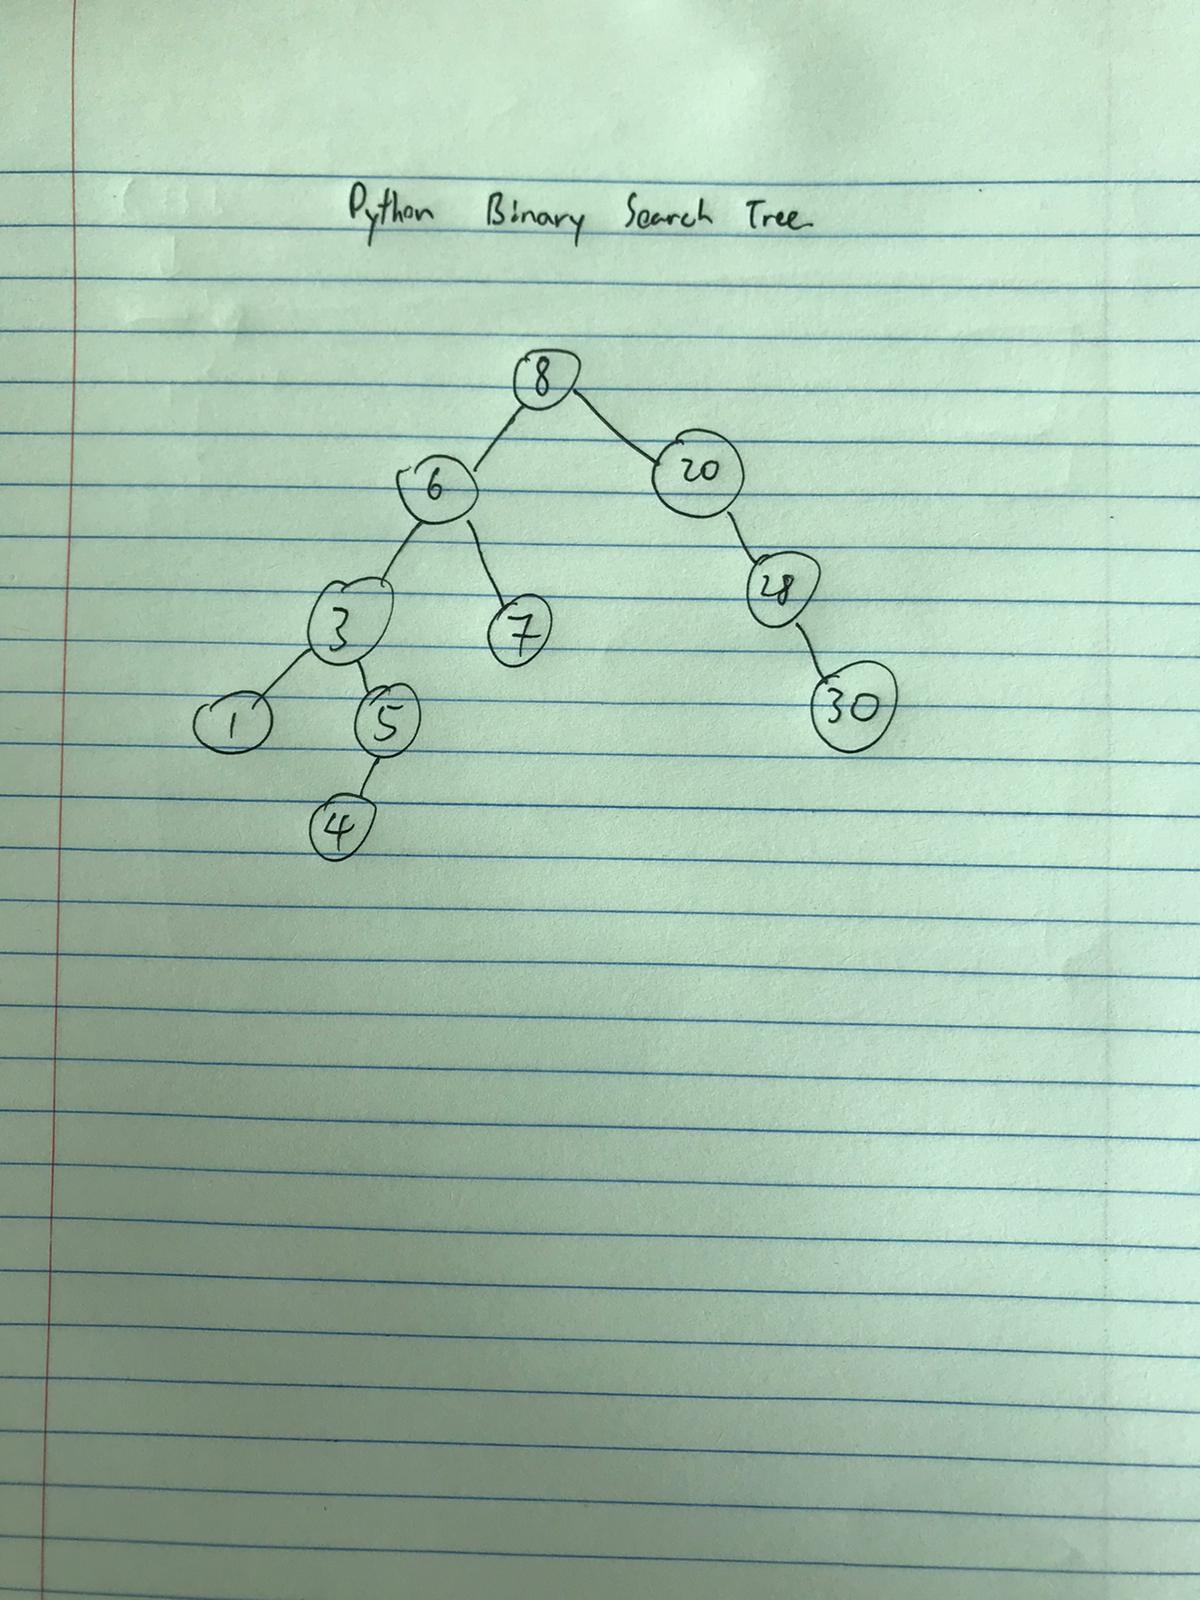 Python Binary Search Tree
8
6 20
28
3 7
30
1 5
4